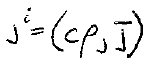 j^i = (cρ, J⃗)